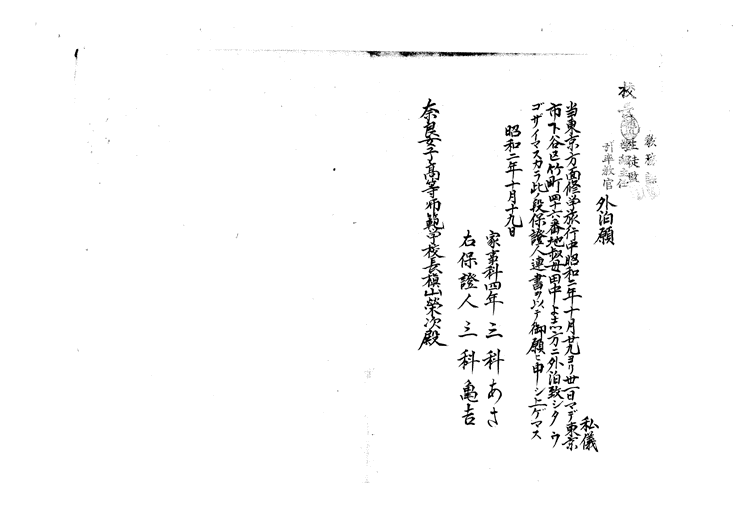 教務課
生徒監
引率教官
校長
外泊願
私儀
当東京方面修学旅行中昭和二年十月廿九ヨリ卅一日マデ東京
市下谷区竹町四十六番地叔母田中よ志方ニ外泊致シタウ
ゴザイマスカラ此ノ段保證人連書ヲ以テ御願ヒ申シ上ゲマス
昭和二年十月十九日
家事科四年 三科あさ
右保證人 三科亀吉
奈良女子高等師範学校長槇山榮次殿